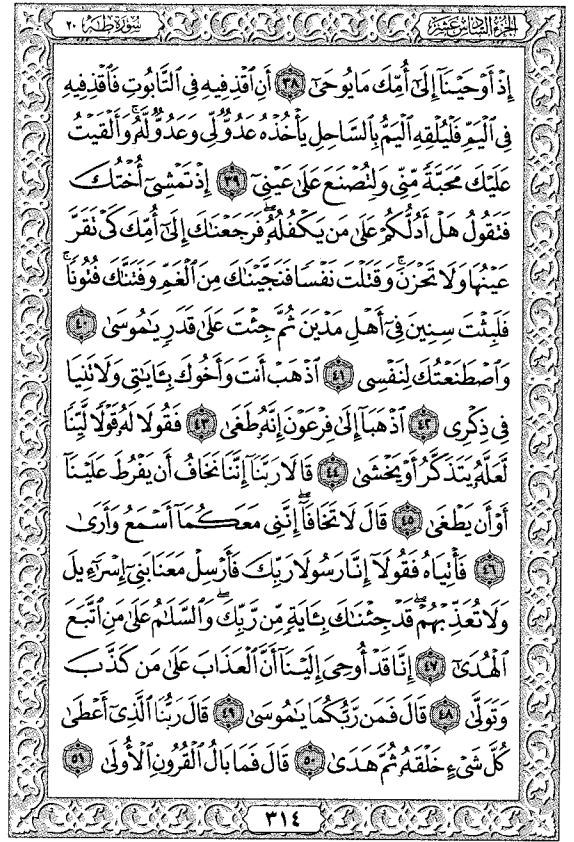 الجزء السادس عشر
سورة طه ٢٠
إِذْ أَوْحَيْنَآ إِلَىٰٓ أُمِّكَ مَا يُوحَىٰٓ ٣٨ أَنِ ٱقْذِفِيهِ فِى ٱلتَّابُوتِ فَٱقْذِفِيهِ
فِى ٱلْيَمِّ فَلْيُلْقِهِ ٱلْيَمُّ بِٱلسَّاحِلِ يَأْخُذْهُ عَدُوٌّ لِّى وَعَدُوٌّ لَّهُۥۚ وَأَلْقَيْتُ
عَلَيْكَ مَحَبَّةً مِّنِّى وَلِتُصْنَعَ عَلَىٰ عَيْنِىٓ ٣٩ إِذْ تَمْشِىٓ أُخْتُكَ
فَتَقُولُ هَلْ أَدُلُّكُمْ عَلَىٰ مَن يَكْفُلُهُۥۖ فَرَجَعْنَٰكَ إِلَىٰٓ أُمِّكَ كَىْ تَقَرَّ
عَيْنُهَا وَلَا تَحْزَنَۚ وَقَتَلْتَ نَفْسًا فَنَجَّيْنَٰكَ مِنَ ٱلْغَمِّ وَفَتَنَّٰكَ فُتُونًاۚ
فَلَبِثْتَ سِنِينَ فِىٓ أَهْلِ مَدْيَنَ ثُمَّ جِئْتَ عَلَىٰ قَدَرٍ يَٰمُوسَىٰ ٤٠
وَٱصْطَنَعْتُكَ لِنَفْسِى ٤١ ٱذْهَبْ أَنتَ وَأَخُوكَ بِـَٔايَٰتِى وَلَا تَنِيَا
فِى ذِكْرِى ٤٢ ٱذْهَبَآ إِلَىٰ فِرْعَوْنَ إِنَّهُۥ طَغَىٰ ٤٣ فَقُولَا لَهُۥ قَوْلًا لَّيِّنًا
لَّعَلَّهُۥ يَتَذَكَّرُ أَوْ يَخْشَىٰ ٤٤ قَالَا رَبَّنَآ إِنَّنَا نَخَافُ أَن يَفْرُطَ عَلَيْنَآ
أَوْ أَن يَطْغَىٰ ٤٥ قَالَ لَا تَخَافَآۖ إِنَّنِى مَعَكُمَآ أَسْمَعُ وَأَرَىٰ
٤٦ فَأْتِيَاهُ فَقُولَآ إِنَّا رَسُولَا رَبِّكَ فَأَرْسِلْ مَعَنَا بَنِىٓ إِسْرَٰٓءِيلَ
وَلَا تُعَذِّبْهُمْۖ قَدْ جِئْنَٰكَ بِـَٔايَةٍ مِّن رَّبِّكَۖ وَٱلسَّلَٰمُ عَلَىٰ مَنِ ٱتَّبَعَ
ٱلْهُدَىٰٓ ٤٧ إِنَّا قَدْ أُوحِىَ إِلَيْنَآ أَنَّ ٱلْعَذَابَ عَلَىٰ مَن كَذَّبَ
وَتَوَلَّىٰ ٤٨ قَالَ فَمَن رَّبُّكُمَا يَٰمُوسَىٰ ٤٩ قَالَ رَبُّنَا ٱلَّذِىٓ أَعْطَىٰ
كُلَّ شَىْءٍ خَلْقَهُۥ ثُمَّ هَدَىٰ ٥٠ قَالَ فَمَا بَالُ ٱلْقُرُونِ ٱلْأُولَىٰ ٥١
٣١٤